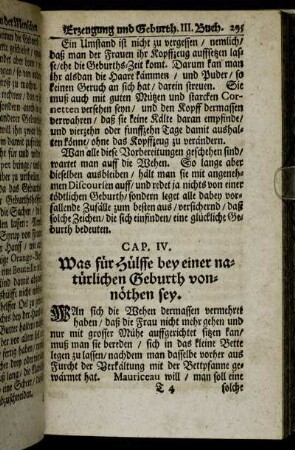 Erzeugung und Geburth. III. Buch. 295
Ein Umstand ist nicht zu vergessen / nemlich /
daß man der Frauen ihr Kopffzeug auffsetzen las-
se / ehe die Geburths-Zeit komt. Darum kan man
ihr alsdan die Haare kämmen / und Puder / so
keinen Geruch an sich hat / darein streuen. Sie
muß auch mit guten Mützen und starcken Cor-
netten versehen seyn / und den Kopff dermassen
verwahren / daß sie keine Kälte daran empfinde /
und vierzehn oder funffzehn Tage damit aushal-
ten könne / ohne das Kopffzeug zu verändern.
Wan alle diese Vorbereitungen geschehen sind /
wartet man auff die Wehen. So lange aber
dieselben ausbleiben / hält man sie mit angeneh-
men Discoursen auff / und redet ja nichts von einer
tödtlichen Geburth / sondern leget alle dabey vor-
fallende Zufälle zum besten aus / versichernd / daß
solche Zeichen / die sich einfinden / eine glückliche Ge-
burth bedeuten.
CAP. IV.
Was für Hülffe bey einer na-
türlichen Geburth von-
nöthen sey.
WAn sich die Wehen dermassen vermehret
haben / daß die Frau nicht mehr gehen und
nur mit grosser Mühe auffgerichtet sitzen kan /
muß man sie bereden / sich in das kleine Bette
legen zu lassen / nachdem man dasselbe vorher aus
Furcht der Verkältung mit der Bettpfanne ge-
wärmet hat. Mauriceau will / man soll eine
T 4 solche